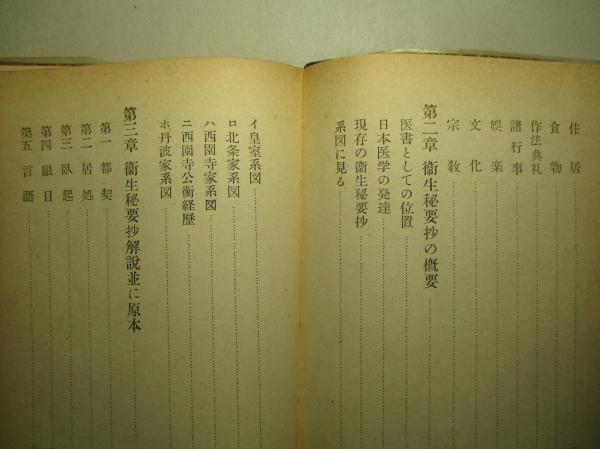 住居
食物
作法典礼
諸行事
娯楽
文化
宗教
第二章 衞生秘要抄の概要
医書としての位置
日本医学の発達
現存の衞生秘要抄
系図に見る
イ 皇室系図
ロ 北条家系図
ハ 西園寺家系図
ニ 西園寺公衡経歴
ホ 丹波家系図
第三章 衞生秘要抄解説並に原本
第一 都契
第二 居処
第三 臥起
第四 眼目
第五 言語